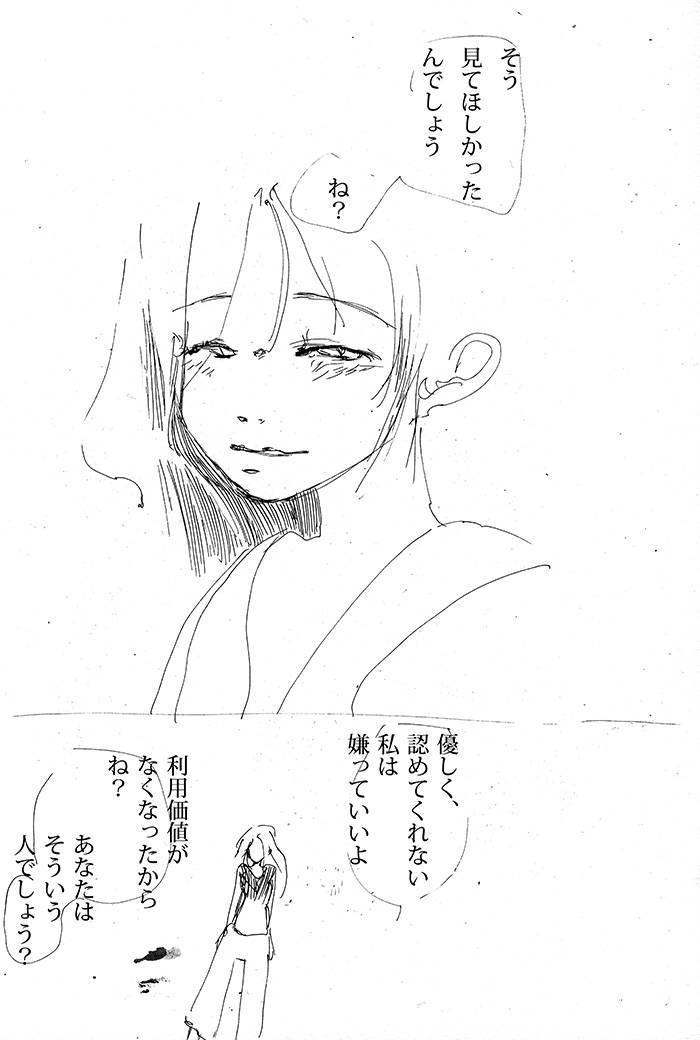 そう
見てほしかった
んでしょう
ね？
優しく、
認めてくれない
私は
嫌っていいよ
利用価値が
なくなったから
ね？
あなたは
そういう
人でしょう？